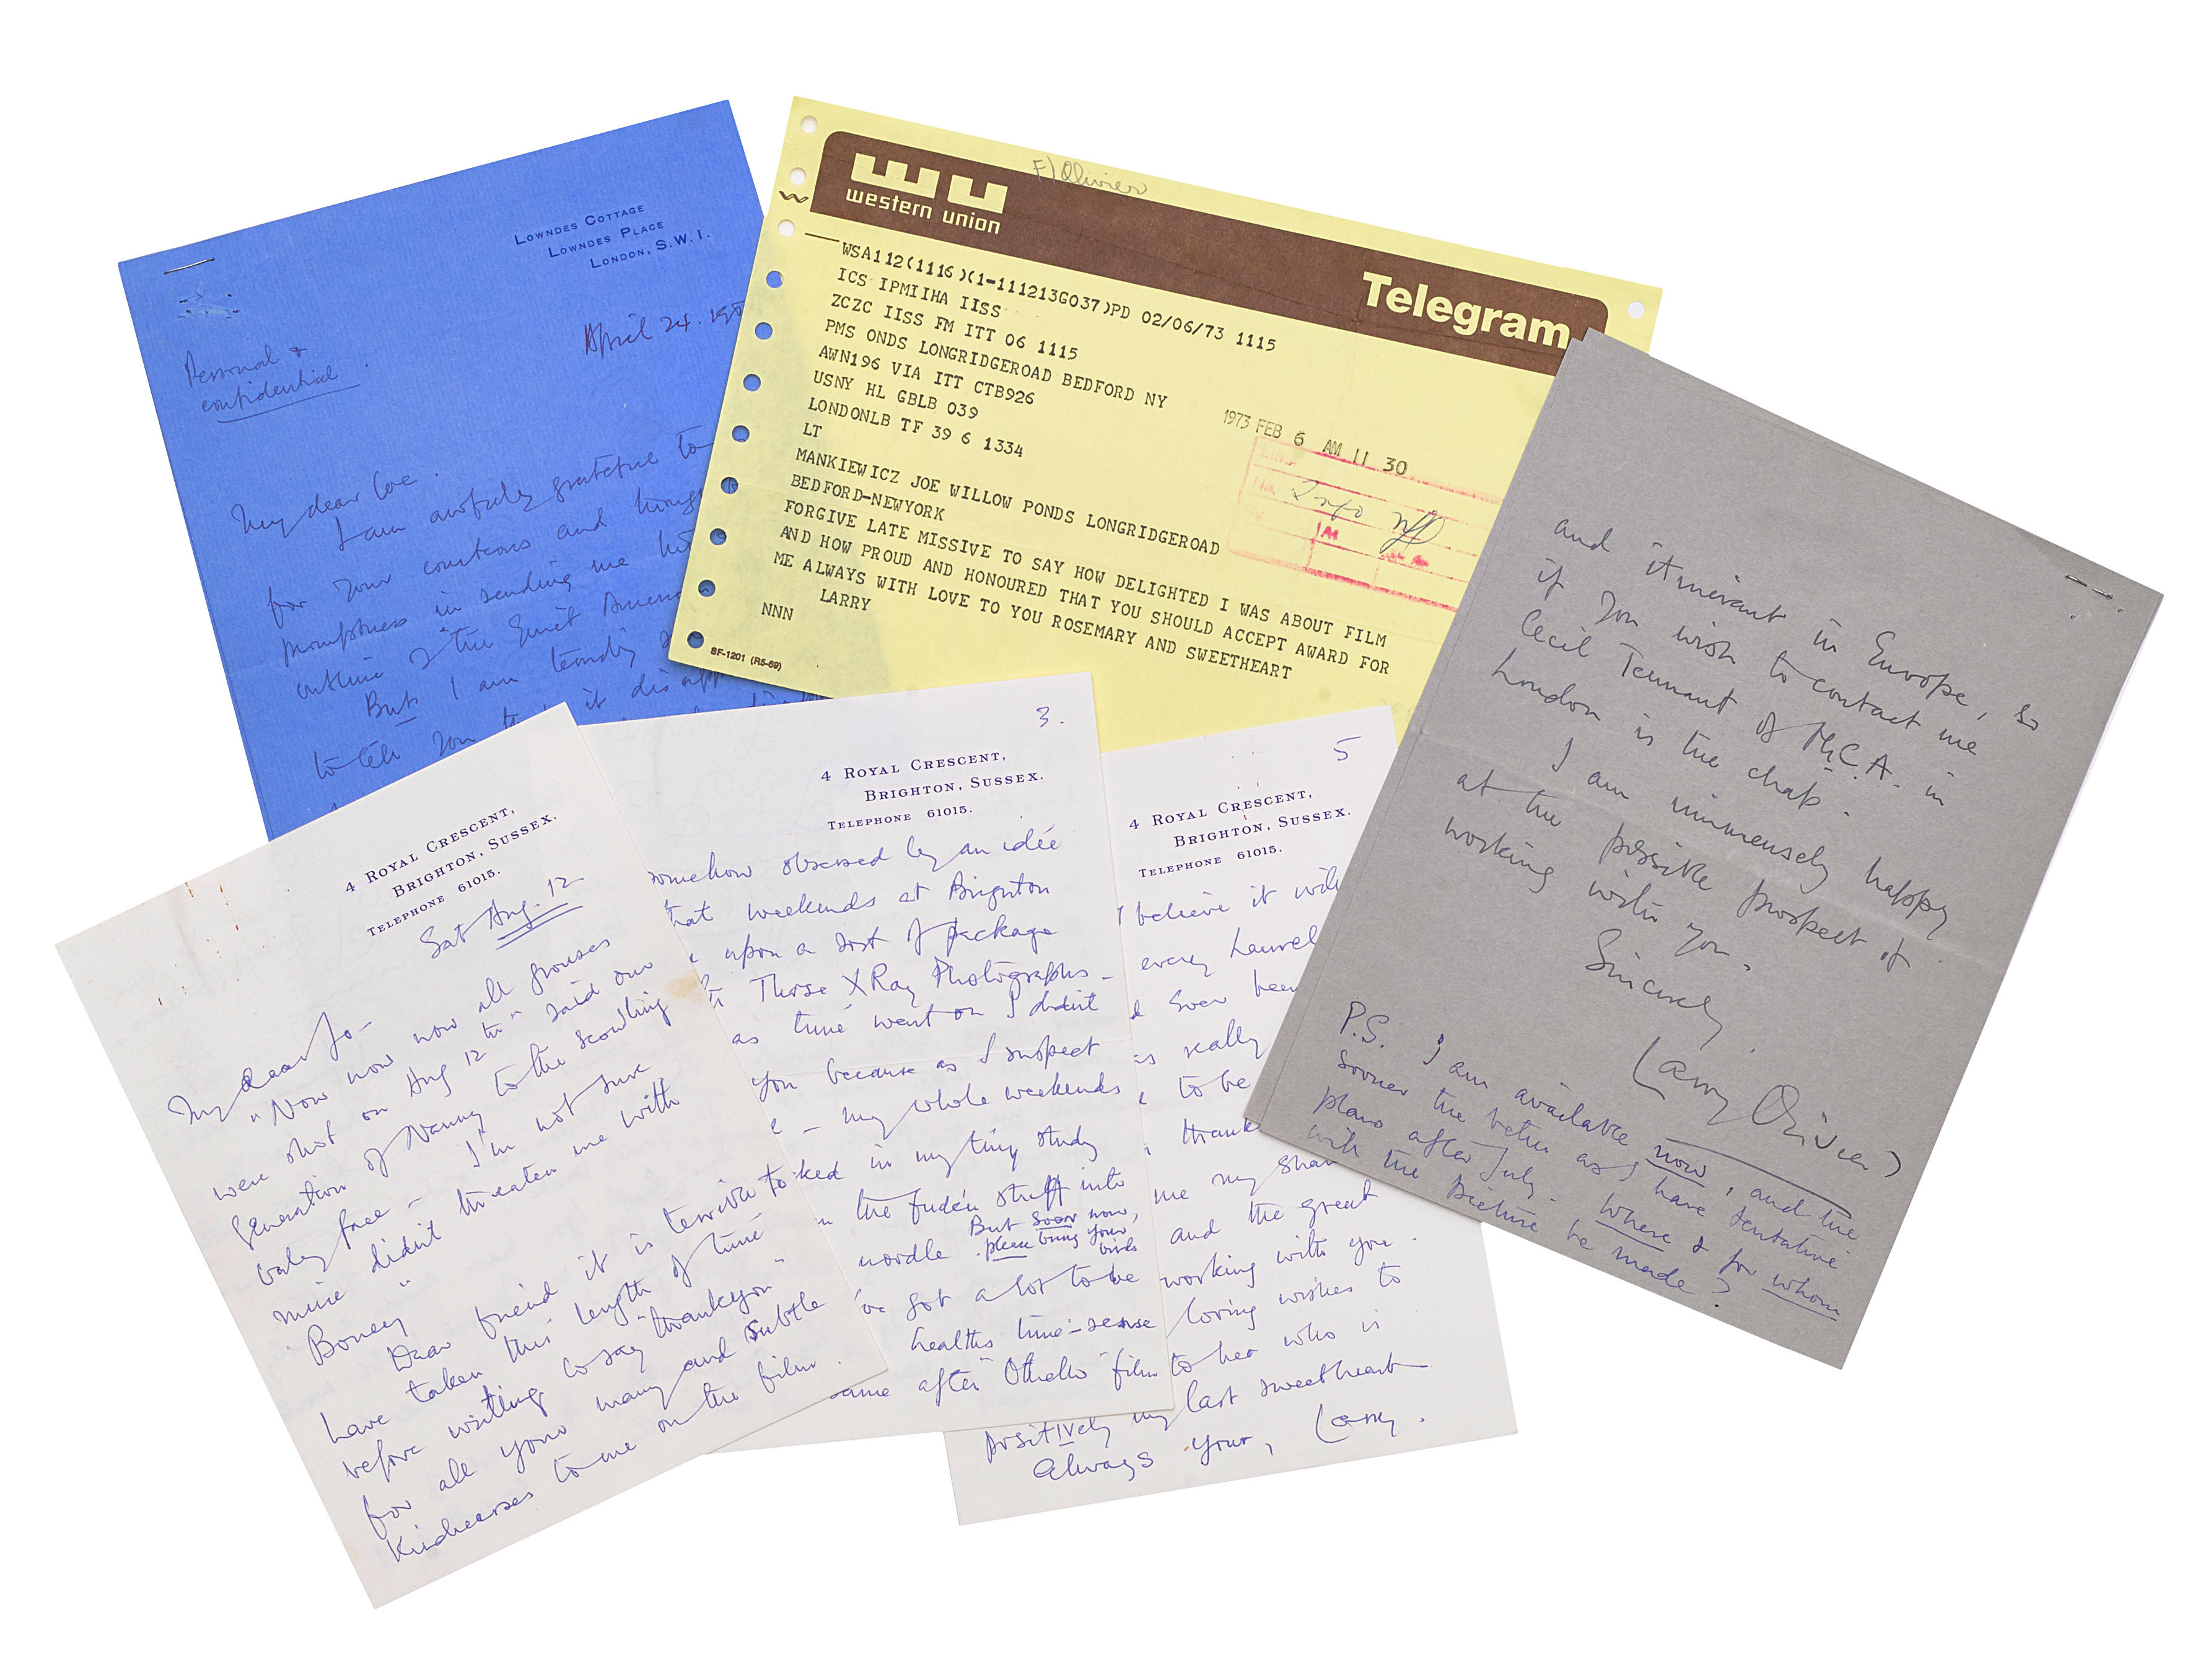 LOWNDES COTTAGE
LOWNDES PLACE
LONDON, S.W.1.
April 24. 195
Personal &
confidential
My dear Joe.
I am awfully grateful to
for your courteous and
promptness in sending me
outline of the Quiet Americ
But I am
to tell you it disapp
F) Olivier
WU
western union
Telegram
WSA112(1116)(1-111213G037)PD 02/06/73 1115
ICS IPMIIHA IISS
ZCZC IISS FM ITT 06 1115
PMS ONDS LONGRIDGEROAD BEDFORD NY
AWN196 VIA ITT CTB926
USNY HL GBLB 039
LONDONLB TF 39 6 1334
LT
1973 FEB 6 AM 11 30
MANKIEWICZ JOE WILLOW PONDS LONGRIDGEROAD
BEDFORD-NEWYORK
FORGIVE LATE MISSIVE TO SAY HOW DELIGHTED I WAS ABOUT FILM
AND HOW PROUD AND HONOURED THAT YOU SHOULD ACCEPT AWARD FOR
ME ALWAYS WITH LOVE TO YOU ROSEMARY AND SWEETHEART
LARRY
NNN
SF-1201 (R5-69)
and itinerant in Europe, so
if you wish to contact me
Cecil Tennant of M.C.A. in
London is the chap.
I am immensely happy
at the possible prospect of
working with you.
Sincerely
Larry Olivier
P.S. I am available now, and the
sooner the better as I have tentative
plans after July. Where & for whom
will the picture be made?
4 ROYAL CRESCENT,
BRIGHTON, SUSSEX.
TELEPHONE 61015.
Sat Aug. 12
My dear Jo-
"Now now now all grouses
were shot on Aug 12th" said one
generation of Nanny to the scowling
baby face - I'm not sure
mine didn't threaten me with
"Boney"
Dear friend it is terrible to
have taken this length of time
before writing to say "thankyou"
for all your many and subtle
kindnesses to me on the film.
3.
4 ROYAL CRESCENT,
BRIGHTON, SUSSEX.
TELEPHONE 61015.
somehow obsessed by an idée
that weekends at Brighton
upon a sort of package
Those X Ray Photographs -
as time went on I didn't
you because as I suspect
- my whole weekends
ked in my tiny study
the stuff into
noodle But soon now,
please bring your
birds
've got a lot to be
healths time-sense
same after "Othello" film
5
4 ROYAL CRESCENT,
BRIGHTON, SUSSEX.
TELEPHONE 61015.
I believe it will
every Laurel
ever been
as really
to be
thank
me my shar
and the great
working with you.
loving wishes to
to her who is
positively my last sweetheart
Always your, Larry.